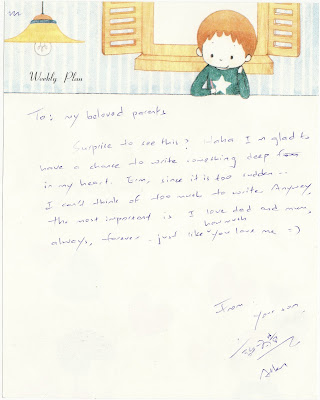 Weekly Plan
To: my beloved parents
Surprise to see this? Haha I'm glad to
have a chance to write something deep
in my heart. Erm, since it is too sudden...
I can't think of too much to write. Anyway,
the most important is I love dad and mum,
always, forever. just like how much you love me =)
From
your son,